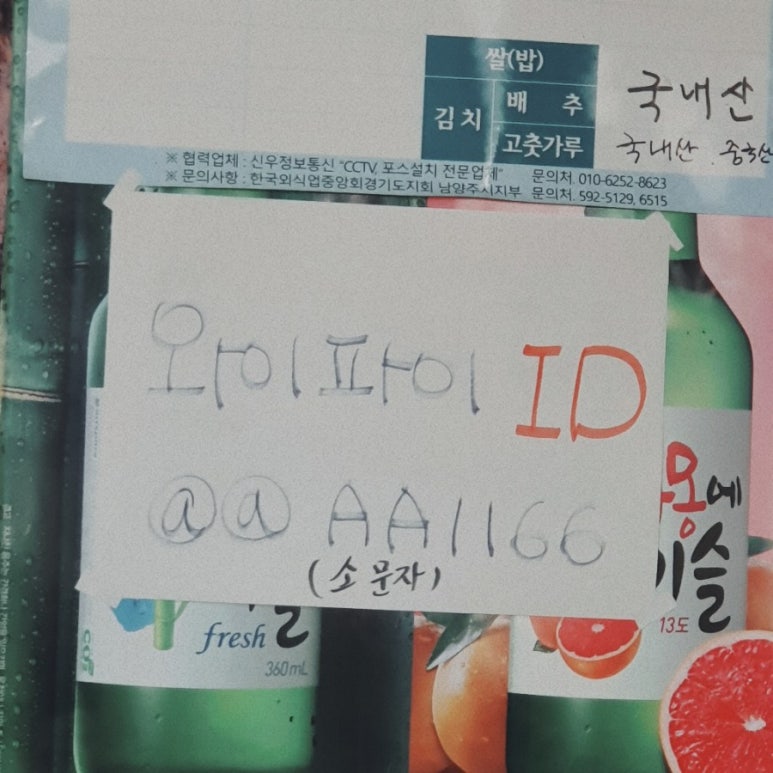 쌀(밥)
국내산
김치
배 추
고춧가루
국내산 . 중국산
※ 협력업체 : 신우정보통신 "CCTV, 포스설치 전문업체" 문의처. 010-6252-8623
※ 문의사항 : 한국외식업중앙회경기도지회 남양주시지부 문의처. 592-5129, 6515
와이파이 ID
@@AA1166
(소문자)
몽에
이슬
fresh
360mL
13도